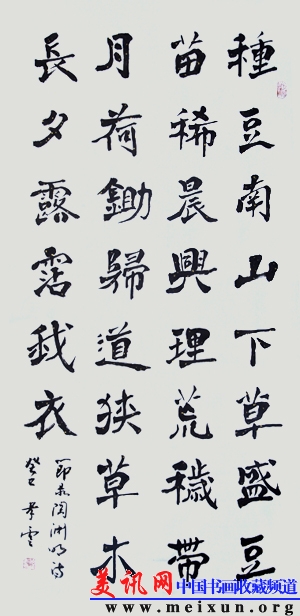 種豆南山下草盛豆
苗稀晨興理荒穢帶
月荷鋤歸道狹草木
長夕露霑我衣
節录陶渊明诗
癸巳
美讯网 中国书画收藏频道
www.meixun.org